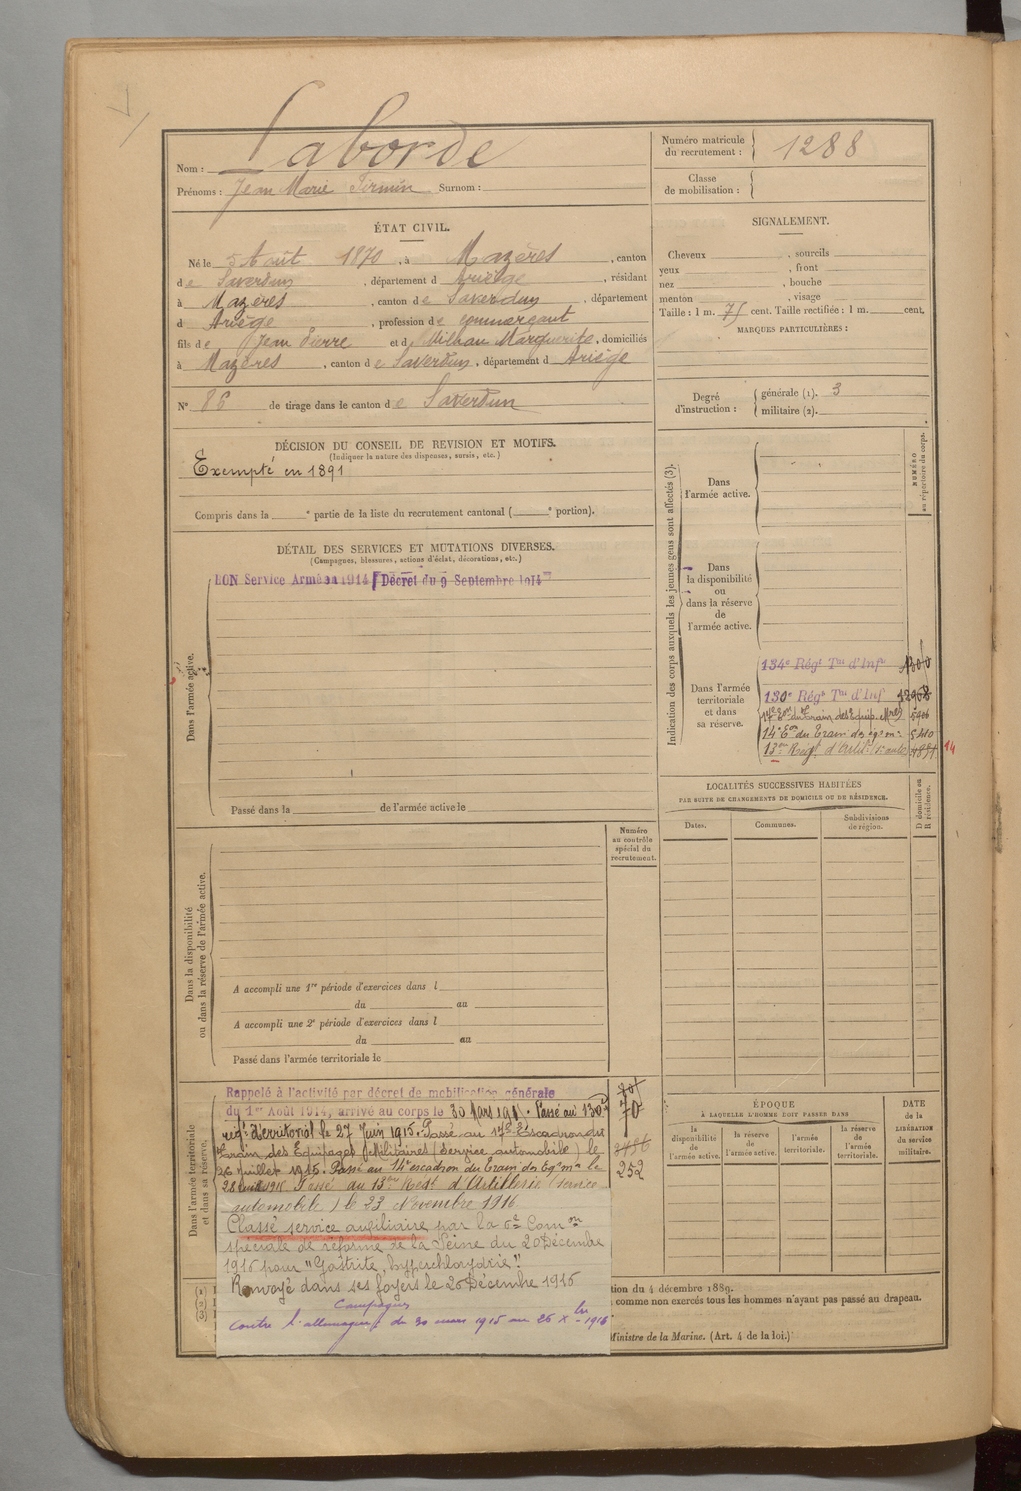 Nom : Laborde
Prénoms : Jean Marie Firmin Surnom :
Numéro matricule du recrutement : 1288
Classe de mobilisation :
ÉTAT CIVIL.
Né le 5 Août 1870, à Mazères, canton
de Saverdun, département d Ariège, résidant
à Mazères, canton de Saverdun, département
d Ariège, profession de commerçant
fils de Jean Pierre et d Milhau Marguerite, domiciliés
à Mazères, canton de Saverdun, département d Ariège
N° 86 de tirage dans le canton de Saverdun
SIGNALEMENT.
Cheveux , sourcils
yeux , front
nez , bouche
menton , visage
Taille : 1 m. 75 cent. Taille rectifiée : 1 m. cent.
MARQUES PARTICULIÈRES :
Degré d'instruction : générale (1). 3
militaire (2).
DÉCISION DU CONSEIL DE REVISION ET MOTIFS.
(Indiquer la nature des dispenses, sursis, etc.)
Exempté en 1891
Compris dans la e partie de la liste du recrutement cantonal ( e portion).
DÉTAIL DES SERVICES ET MUTATIONS DIVERSES.
(Campagnes, blessures, actions d'éclat, décorations, etc.)
BON Service Armé en 1914 Décret du 9 Septembre 1914
Dans l'armée active.
Passé dans la de l'armée active le
Indication des corps auxquels les jeunes gens sont affectés (3).
NUMÉRO au répertoire du corps.
Dans l'armée active.
Dans la disponibilité ou dans la réserve de l'armée active.
Dans l'armée territoriale et dans sa réserve.
134e Régt Tal d'Infie
130e Régt Tal d'Infie
14e Eon du Train des eq. m.
13me Régt d'Artie
14
LOCALITÉS SUCCESSIVES HABITÉES
PAR SUITE DE CHANGEMENTS DE DOMICILE OU DE RÉSIDENCE.
Dates. Communes. Subdivisions de région.
D domicile ou R résidence.
Numéro au contrôle spécial du recrutement.
Dans la disponibilité ou dans la réserve de l'armée active.
A accompli une 1re période d'exercices dans l
du au
A accompli une 2e période d'exercices dans l
du au
Passé dans l'armée territoriale le
Dans l'armée territoriale et dans sa réserve.
Rappelé à l'activité par décret de mobilisation générale
du 1er Août 1914, arrivé au corps le 30 Mars 1915. Passé au 130e
régt territorial le 27 Juin 1915. Passé au 17e Escadron du
Train des Equipages Militaires (Service automobile) le
26 Juillet 1915. Passé au 14e escadron du Train des Eq. m. le
Passé au 13me Régt d'Artillerie (service
automobile) le 23 Novembre 1916
Classé service auxiliaire par la 6e Comon
spéciale de réforme de la Seine du 20 Décembre
1916 pour "Gastrite, hyperchlorydrie".
Renvoyé dans ses foyers le 26 Décembre 1916
Campagnes
Contre l'allemagne, du 30 mars 1915 au 26 Xbre 1916
70
252
ÉPOQUE
À LAQUELLE L'HOMME DOIT PASSER DANS
la disponibilité de l'armée active. la réserve de l'armée active. l'armée territoriale. la réserve de l'armée territoriale.
DATE de la LIBÉRATION du service militaire.
(1)
(2)
(3)
tion du 4 décembre 1889.
comme non exercés tous les hommes n'ayant pas passé au drapeau.
Ministre de la Marine. (Art. 4 de la loi.)